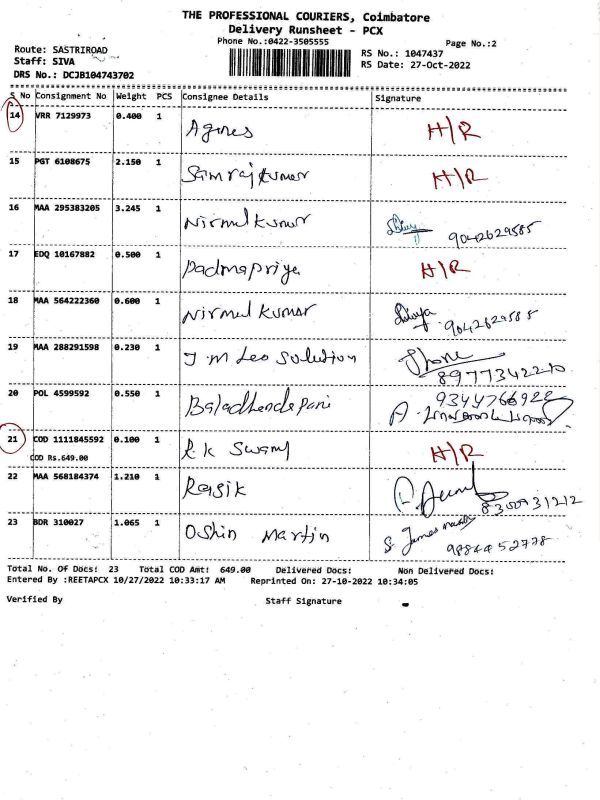 THE PROFESSIONAL COURIERS, Coimbatore
Delivery Runsheet - PCX
Phone No.:0422-3505555
Page No.:2
Route: SASTRIROAD
Staff: SIVA
DRS No.: DCJB104743702
RS No.: 1047437
RS Date: 27-Oct-2022
S No Consignment No Weight PCS Consignee Details Signature
14 VRR 7129973 0.400 1 Agnes H/R
15 PGT 6108675 2.150 1 Samrajkumar H/R
16 MAA 295383205 3.245 1 Nirmal Kumar Divya 9042629585
17 EDQ 10167882 0.500 1 Padmapriya H/R
18 MAA 564222360 0.600 1 Nirmal Kumar Divya 9042629585
19 MAA 288291598 0.230 1 J M Leo Solution Phone
8977342210
20 POL 4599592 0.550 1 Baladhandapani 9344766928
21 COD 1111845592 0.100 1 R.K Swamy H/R
COD Rs.649.00
22 MAA 568184374 1.210 1 Rasik
23 BDR 310027 1.065 1 Oshin Martin S. James
Total No. Of Docs: 23 Total COD Amt: 649.00 Delivered Docs: Non Delivered Docs:
Entered By :REETAPCX 10/27/2022 10:33:17 AM Reprinted On: 27-10-2022 10:34:05
Verified By Staff Signature